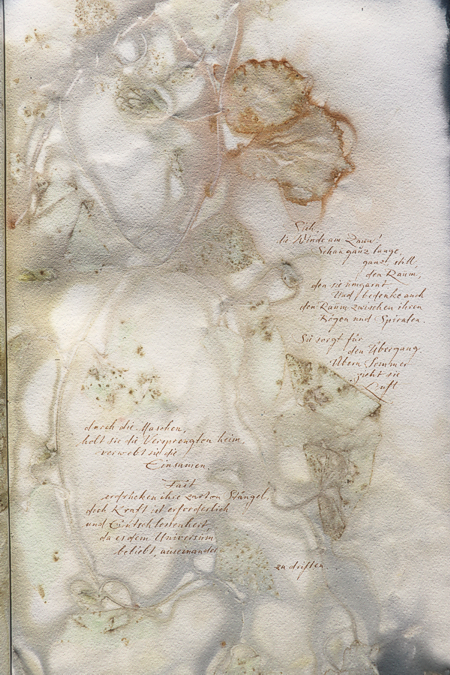 Sieh,
die Winde am Zaun!
Schau ganz lange,
ganz still
den Raum,
den sie umgarnt
Und bedenke auch
den Raum zwischen ihren
Bögen und Spiralen
Sie sorgt für
den Übergang
Übern Sommer
zieht sie
Luft
durch die Maschen,
holt sie die Versprengten heim,
verwebt sie die
Einsamen.
Fast
zerbrechen ihre zarten Stängel,
doch Kraft ist erforderlich
und Entschlossenheit,
da es dem Universum
beliebt, auseinander
zu driften.